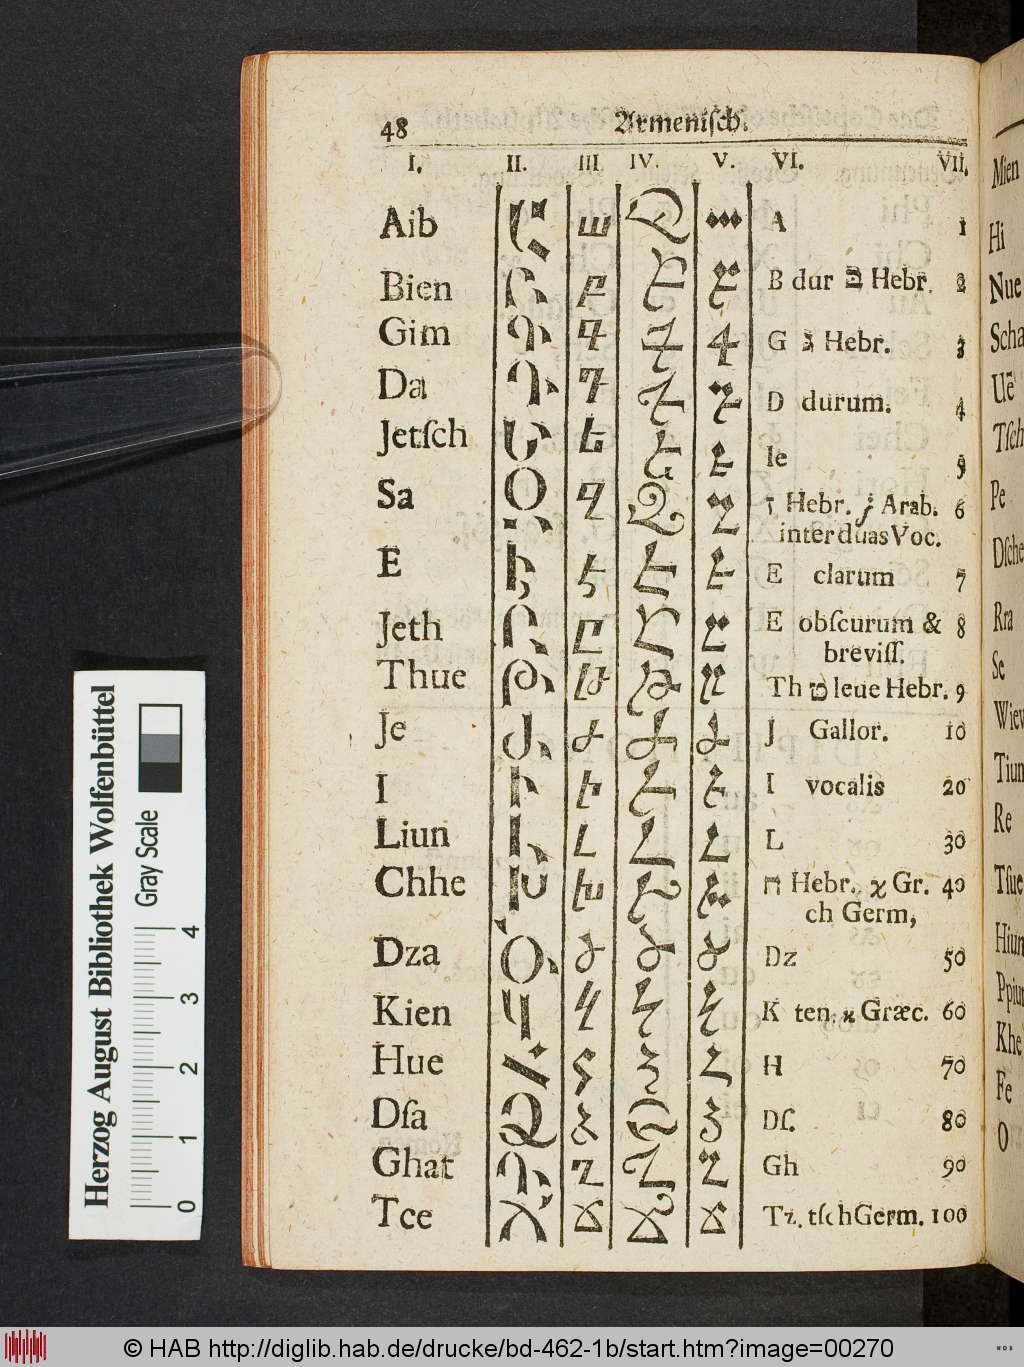 48 Armeniſch.
I. II. III IV. V. VI. VII.
Aib Ա ա A 1
Bien Բ բ B dur בּ Hebr. 2
Gim Գ գ G ג Hebr. 3
Da Դ դ D durum. 4
Jetſch Ե ե Ie 5
Sa Զ զ ז Hebr. ز Arab. 6
inter duas Voc.
E Է է E clarum 7
Jeth Ը ը E obſcurum & 8
breviſſ.
Thue Թ թ Th ט leue Hebr. 9
Je Ժ ժ J Gallor. 10
I Ի ի I vocalis 20
Liun Լ լ L 30
Chhe Խ խ ח Hebr. χ Gr. 40
ch Germ,
Dza Ծ ծ Dz 50
Kien Կ կ K ten. ϰ Græc. 60
Hue Հ հ H 70
Dſa Ձ ձ Dſ. 80
Ghat Ղ ղ Gh 90
Tce Ճ ճ Tz. tſch Germ. 100
Mien
Hi
Nue
Scha
Uē
Tſch
Pe
Dſche
Rra
Se
Wiev
Tiun
Re
Tſue
Hiun
Ppiur
Khe
Fe
O
Herzog August Bibliothek Wolfenbüttel
Gray Scale
0 1 2 3 4
© HAB http://diglib.hab.de/drucke/bd-462-1b/start.htm?image=00270